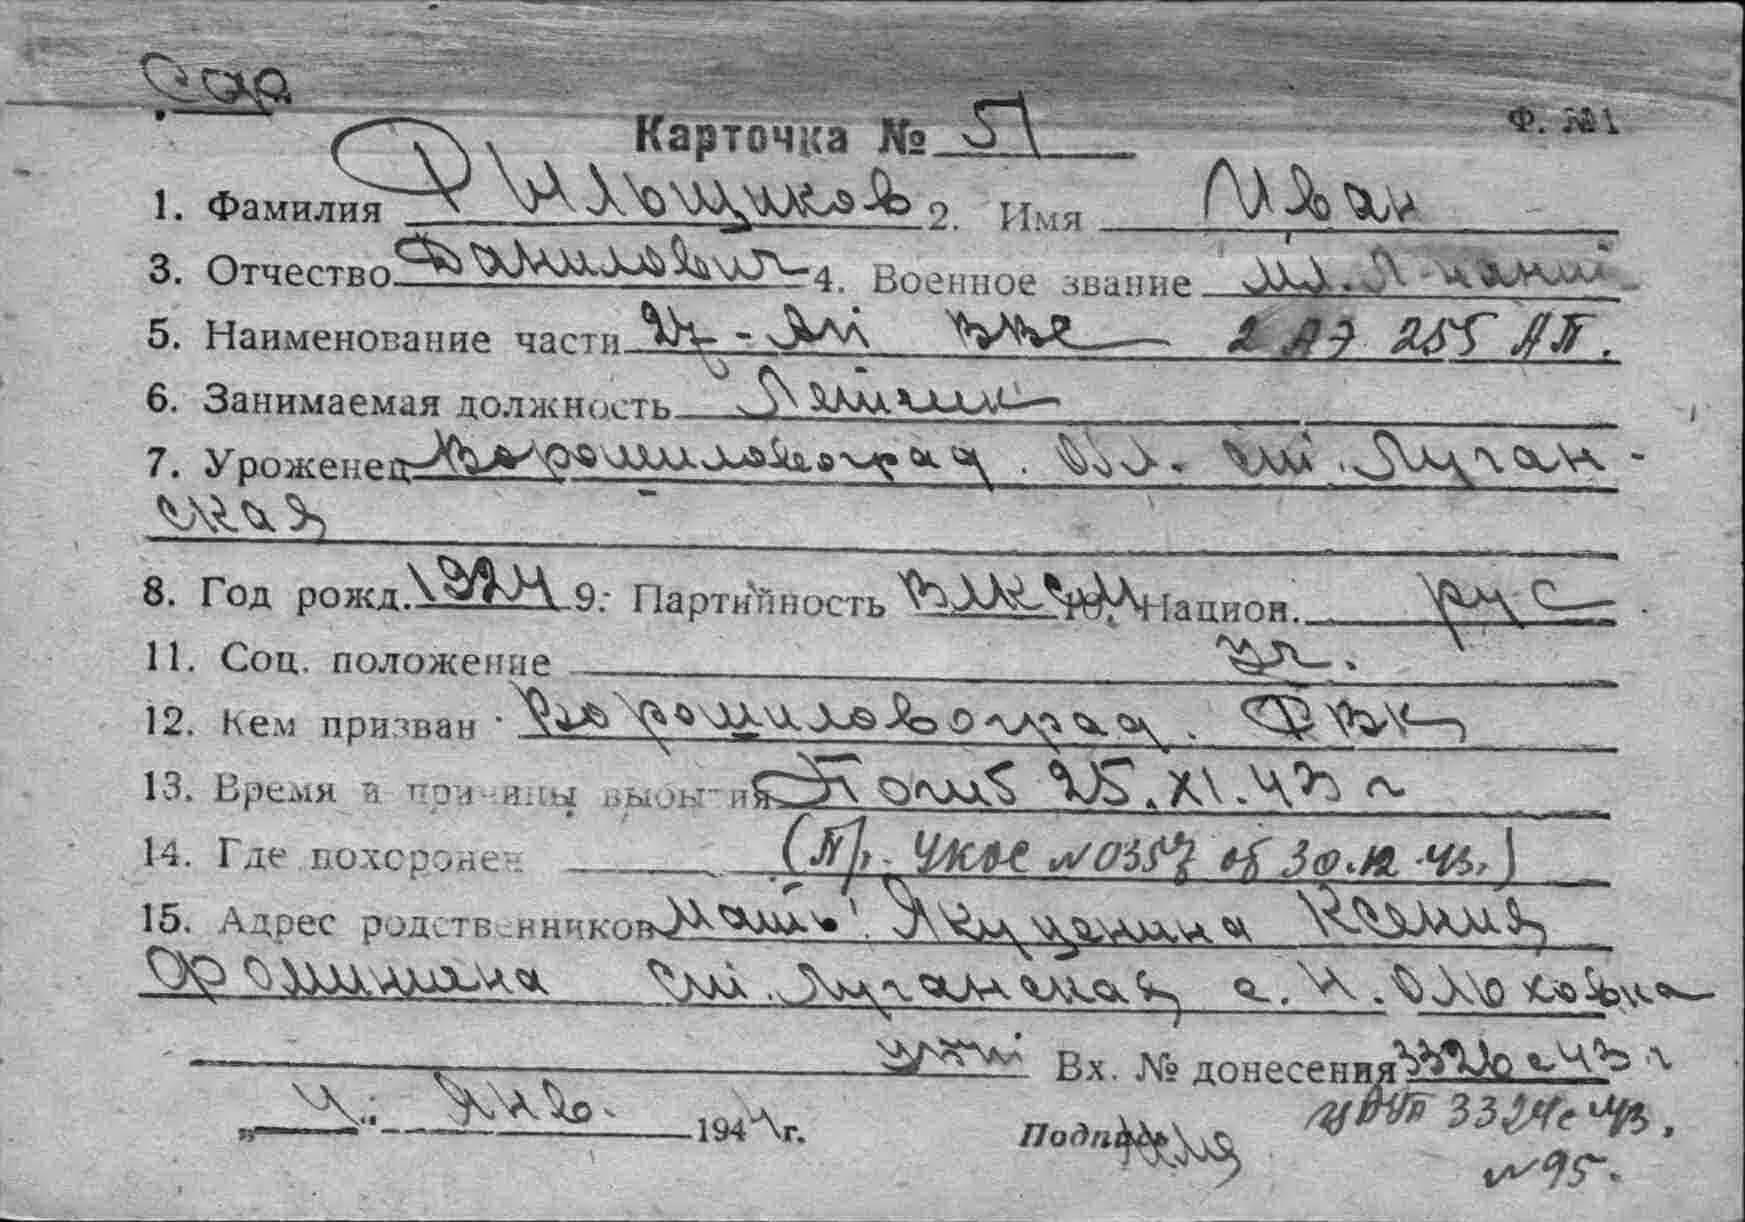 Сар
Карточка № 51 Ф. №1
1. Фамилия Фильщиков 2. Имя Иван
3. Отчество Данилович 4. Военное звание мл. л-нант
5. Наименование части 27-АП ВВС 2 АЭ 255 АП.
6. Занимаемая должность Летчик
7. Уроженец Ворошиловоград. Обл. ст. Луган-
ская
8. Год рожд. 1924 9. Партийность ВЛКСМ 10. Национ. рус
11. Соц. положение уч.
12. Кем призван Ворошиловоград. ФВК
13. Время и причины выбытия Погиб 25.XI.43 г
14. Где похоронен (Пр. УКОС №0357 от 30.12.43.)
15. Адрес родственников Мать: Якуценина Ксения
Фоминична ст. Луганская с. Н. Ольховка
Вх. № донесения 3326 с 43 г
„4" Янв. 1944 г. Подпись 3324с 43.
№95.